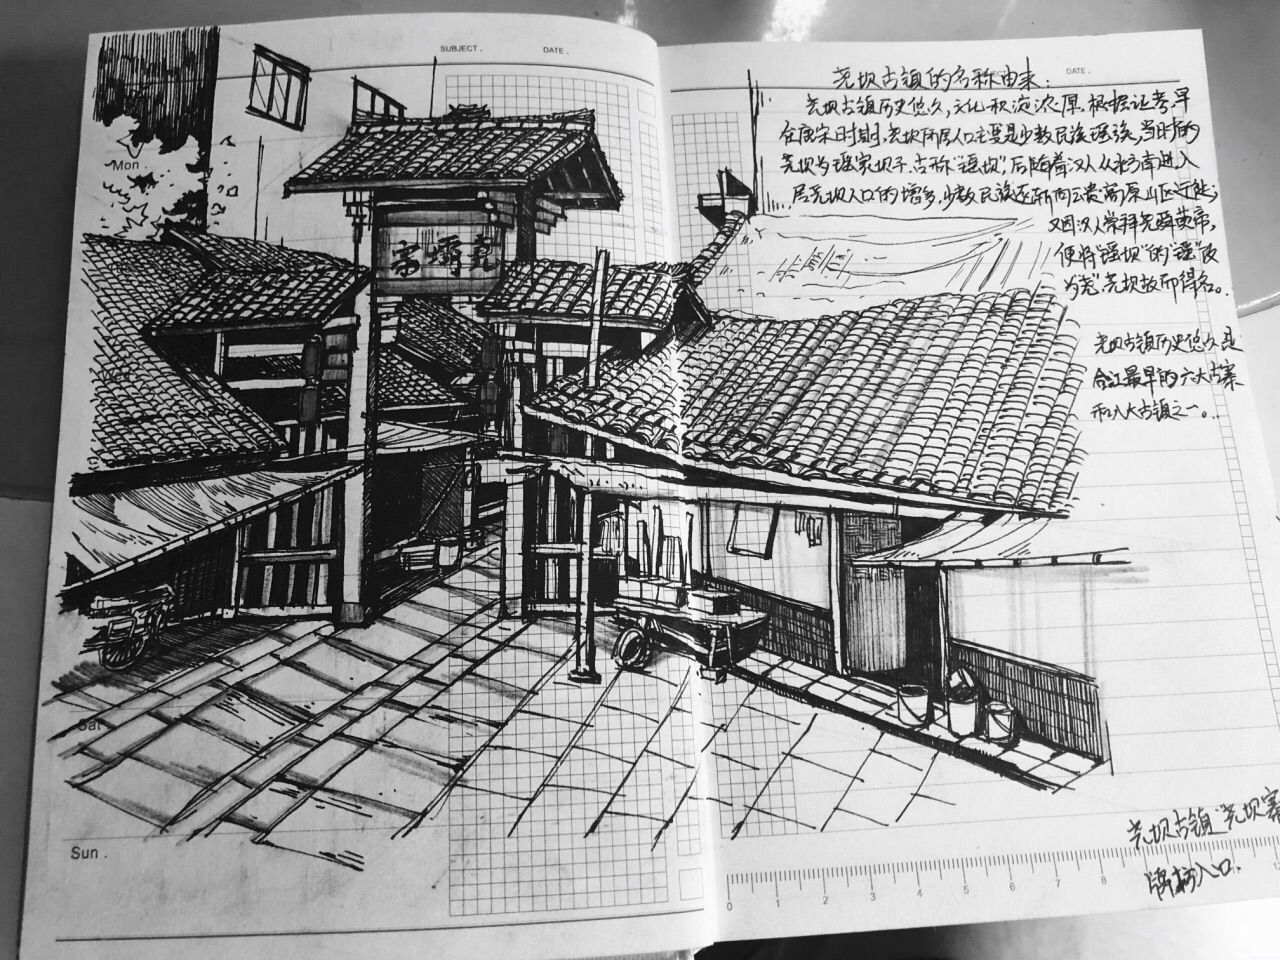 SUBJECT .
DATE .
Mon .
Sat
Sun .
寨壩堯
DATE .
尧坝古镇的名称由来：
尧坝古镇历史悠久，文化积淀浓厚，根据证考，早
在唐宋时期，尧坝所居人口主要是少数民族瑶族，当时的
尧坝为瑶家坝子，古称“瑶坝”，后随着汉人从北方南进入
居尧坝人口的增多，少数民族逐渐向云贵高原山区迁徙；
又因汉人崇拜尧舜英帝，
便将“瑶坝”的“瑶”改
为“尧”，尧坝故而得名。
尧坝古镇历史悠久是
合江最早的六大古寨
和八大古镇之一。
尧坝古镇“尧坝寨
牌坊入口.
0 1 2 3 4 5 6 7 8